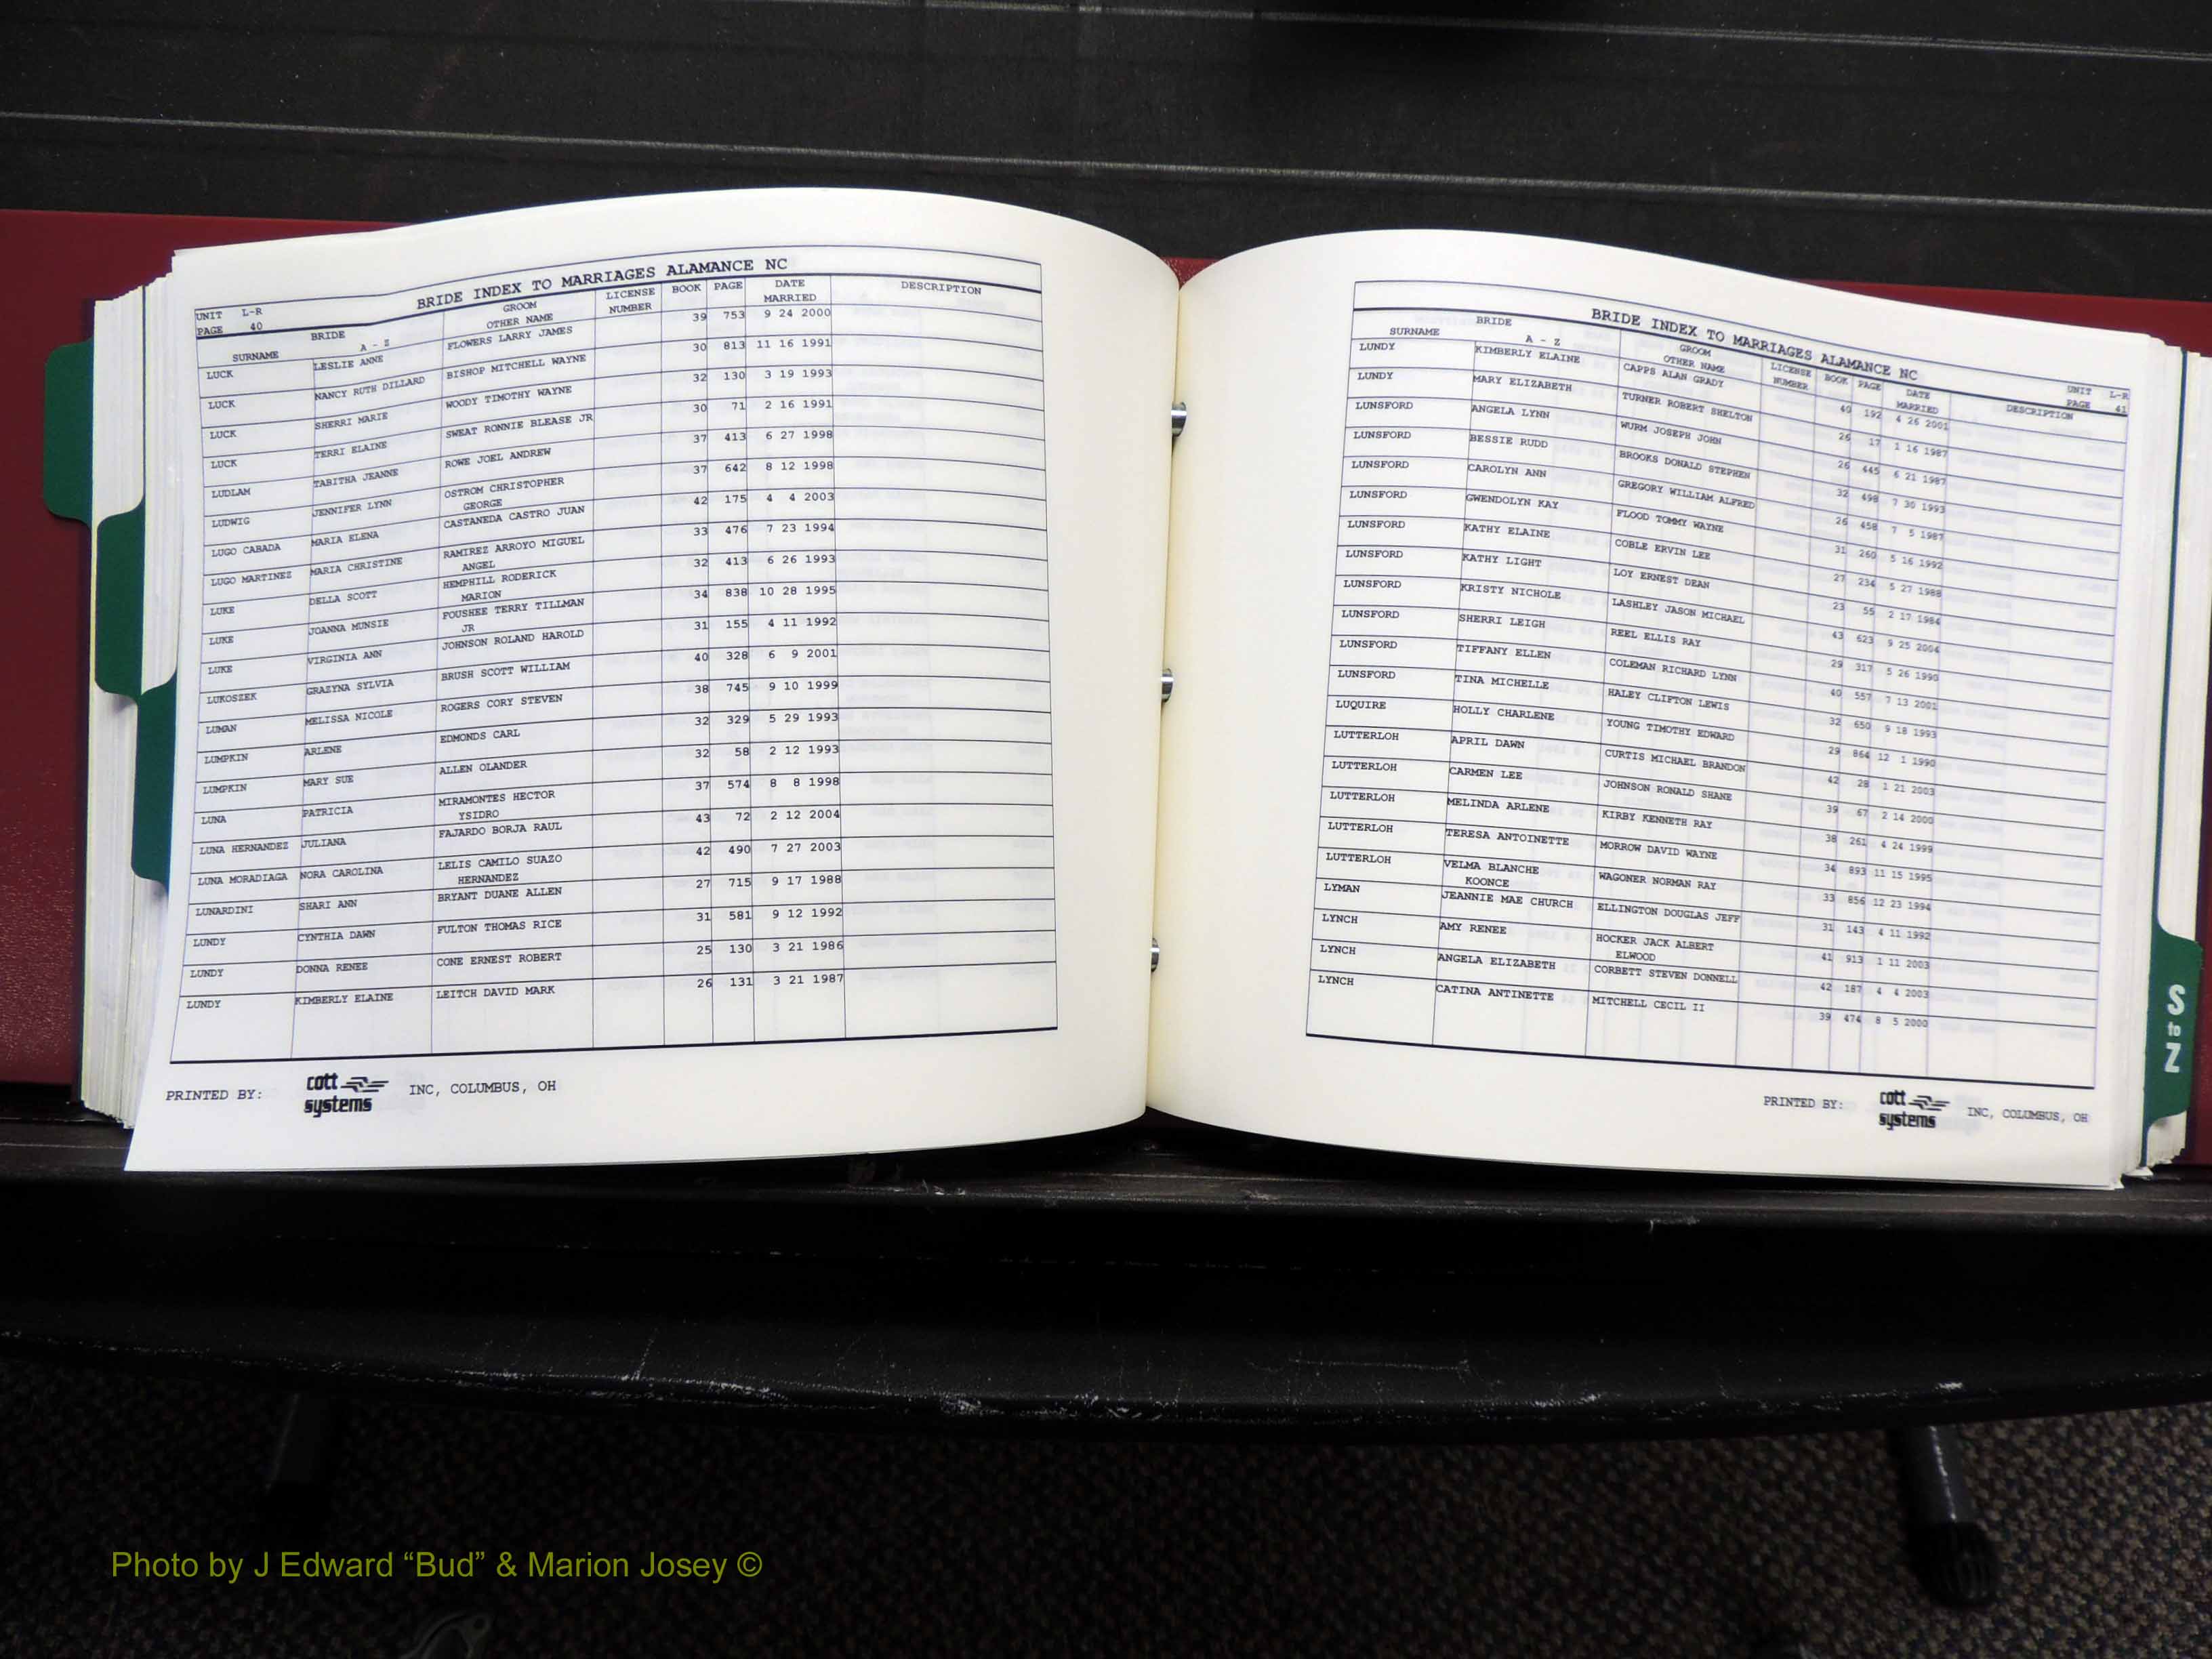 BRIDE INDEX TO MARRIAGES ALAMANCE NC
UNIT L-R
PAGE 40
BRIDE GROOM LICENSE BOOK PAGE DATE DESCRIPTION
SURNAME A - Z OTHER NAME NUMBER MARRIED
LUCK LESLIE ANNE FLOWERS LARRY JAMES 39 753 9 24 2000
LUCK NANCY RUTH DILLARD BISHOP MITCHELL WAYNE 30 813 11 16 1991
LUCK SHERRI MARIE WOODY TIMOTHY WAYNE 32 130 3 19 1993
LUCK TERRI ELAINE SWEAT RONNIE BLEASE JR 30 71 2 16 1991
LUDLAM TABITHA JEANNE ROWE JOEL ANDREW 37 413 6 27 1998
LUDWIG JENNIFER LYNN OSTROM CHRISTOPHER 37 642 8 12 1998
GEORGE
LUGO CABADA MARIA ELENA CASTANEDA CASTRO JUAN 42 175 4 4 2003
LUGO MARTINEZ MARIA CHRISTINE RAMIREZ ARROYO MIGUEL 33 476 7 23 1994
ANGEL
LUKE DELLA SCOTT HEMPHILL RODERICK 32 413 6 26 1993
MARION
LUKE JOANNA MUNSIE FOUSHEE TERRY TILLMAN 34 838 10 28 1995
JR
LUKE VIRGINIA ANN JOHNSON ROLAND HAROLD 31 155 4 11 1992
LUKOSZEK GRAZYNA SYLVIA BRUSH SCOTT WILLIAM 40 328 6 9 2001
LUMAN MELISSA NICOLE ROGERS CORY STEVEN 38 745 9 10 1999
LUMPKIN ARLENE EDMONDS CARL 32 329 5 29 1993
LUMPKIN MARY SUE ALLEN OLANDER 32 58 2 12 1993
LUNA PATRICIA MIRAMONTES HECTOR 37 574 8 8 1998
YSIDRO
LUNA HERNANDEZ JULIANA FAJARDO BORJA RAUL 43 72 2 12 2004
LUNA MORADIAGA NORA CAROLINA LELIS CAMILO SUAZO 42 490 7 27 2003
HERNANDEZ
LUNARDINI SHARI ANN BRYANT DUANE ALLEN 27 715 9 17 1988
LUNDY CYNTHIA DAWN FULTON THOMAS RICE 31 581 9 12 1992
LUNDY DONNA RENEE CONE ERNEST ROBERT 25 130 3 21 1986
LUNDY KIMBERLY ELAINE LEITCH DAVID MARK 26 131 3 21 1987
PRINTED BY: cott systems INC, COLUMBUS, OH
BRIDE INDEX TO MARRIAGES ALAMANCE NC
UNIT L-R
PAGE 41
BRIDE GROOM LICENSE BOOK PAGE DATE DESCRIPTION
SURNAME A - Z OTHER NAME NUMBER MARRIED
LUNDY KIMBERLY ELAINE CAPPS ALAN GRADY 40 192 4 26 2001
LUNDY MARY ELIZABETH TURNER ROBERT SHELTON 26 17 1 16 1987
LUNSFORD ANGELA LYNN WURM JOSEPH JOHN 26 445 6 21 1987
LUNSFORD BESSIE RUDD BROOKS DONALD STEPHEN 32 498 7 30 1993
LUNSFORD CAROLYN ANN GREGORY WILLIAM ALFRED 26 458 7 5 1987
LUNSFORD GWENDOLYN KAY FLOOD TOMMY WAYNE 31 260 5 16 1992
LUNSFORD KATHY ELAINE COBLE ERVIN LEE 27 234 5 27 1988
LUNSFORD KATHY LIGHT LOY ERNEST DEAN 23 55 2 17 1984
LUNSFORD KRISTY NICHOLE LASHLEY JASON MICHAEL 43 623 9 25 2004
LUNSFORD SHERRI LEIGH REEL ELLIS RAY 29 317 5 26 1990
LUNSFORD TIFFANY ELLEN COLEMAN RICHARD LYNN 40 557 7 13 2001
LUNSFORD TINA MICHELLE HALEY CLIFTON LEWIS 32 650 9 18 1993
LUQUIRE HOLLY CHARLENE YOUNG TIMOTHY EDWARD 29 864 12 1 1990
LUTTERLOH APRIL DAWN CURTIS MICHAEL BRANDON 42 28 1 21 2003
LUTTERLOH CARMEN LEE JOHNSON RONALD SHANE 39 67 2 14 2000
LUTTERLOH MELINDA ARLENE KIRBY KENNETH RAY 38 261 4 24 1999
LUTTERLOH TERESA ANTOINETTE MORROW DAVID WAYNE 34 893 11 15 1995
LUTTERLOH VELMA BLANCHE WAGONER NORMAN RAY 33 856 12 23 1994
KOONCE
LYMAN JEANNIE MAE CHURCH ELLINGTON DOUGLAS JEFF 31 143 4 11 1992
LYNCH AMY RENEE HOCKER JACK ALBERT 41 913 1 11 2003
ELWOOD
LYNCH ANGELA ELIZABETH CORBETT STEVEN DONNELL 42 187 4 4 2003
LYNCH CATINA ANTINETTE MITCHELL CECIL II 39 474 8 5 2000
PRINTED BY: cott systems INC, COLUMBUS, OH
S
to
Z
Photo by J Edward “Bud” & Marion Josey ©